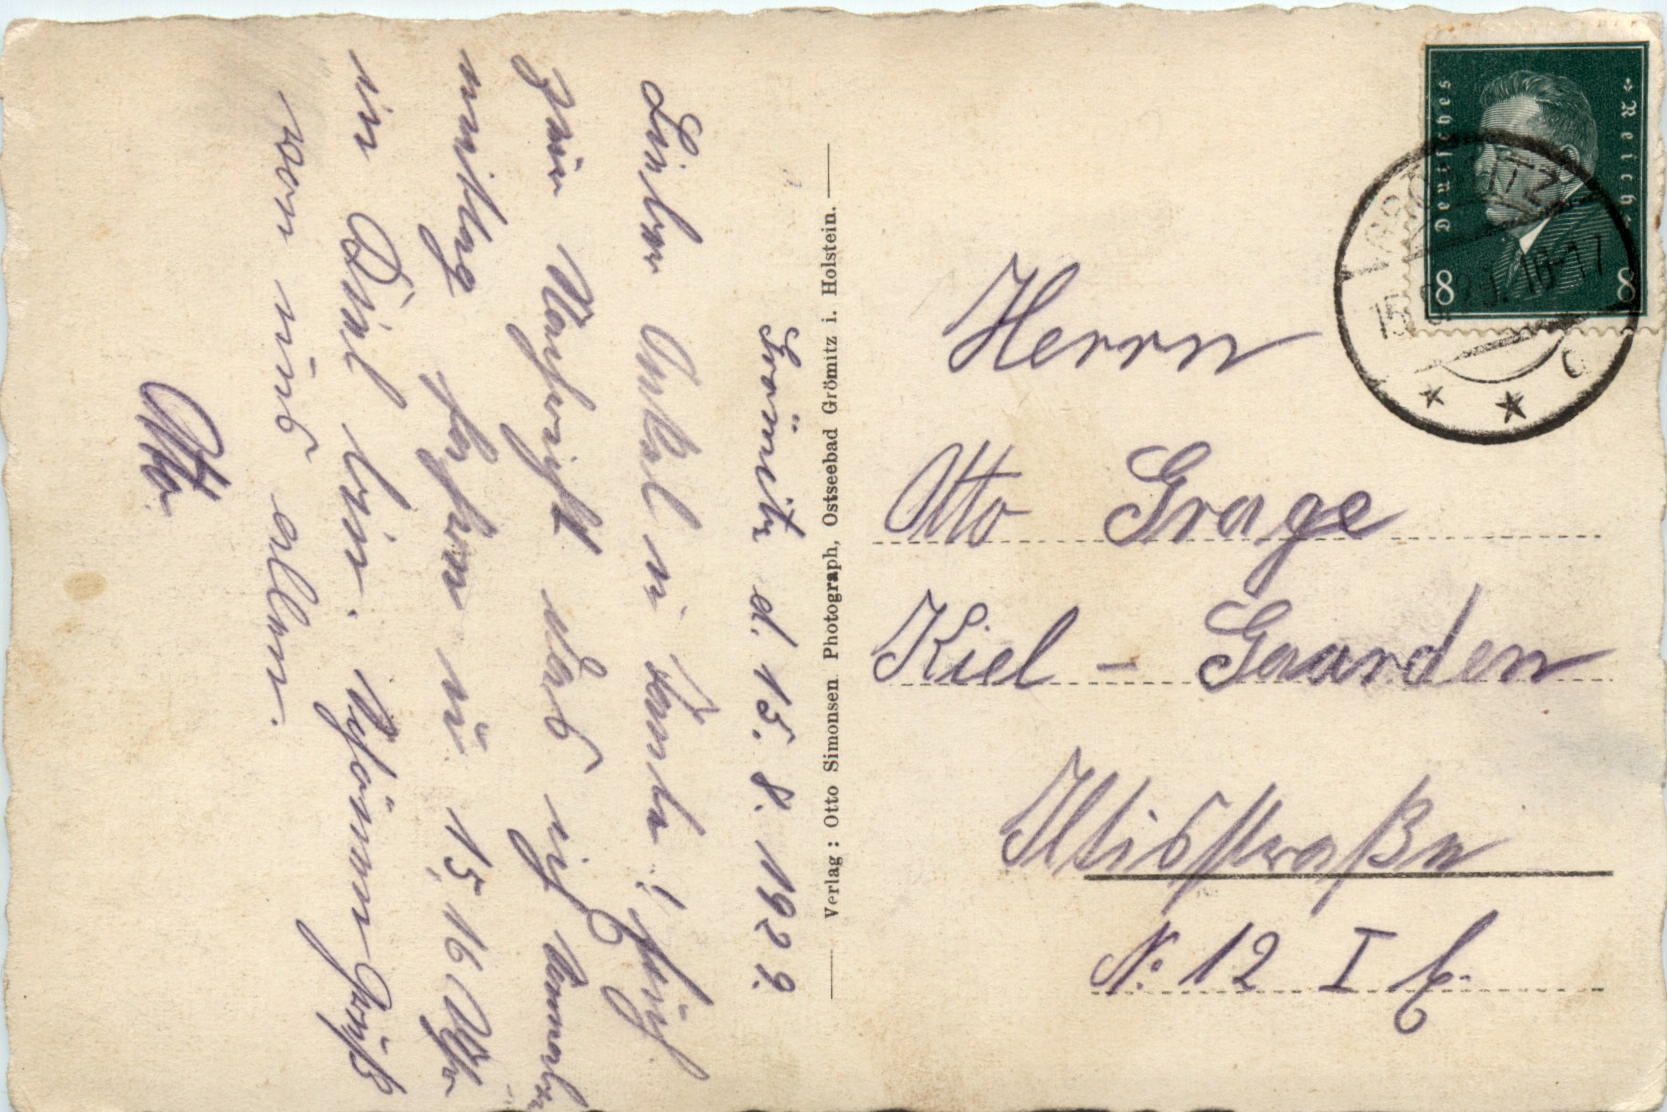 Grömitz d. 15. 8. 1929.
Lieber Onkel u Tante! Euch
zur Nachricht das ich
mittag fahre u. 15,16 Uhr
in Kiel bin. Schönen Gruß
von uns allen.
Otto
Verlag: Otto Simonsen Photograph, Ostseebad Grömitz i. Holstein.
Deutsches Reich
8 8
GRÖMITZ
15. 8. 29. 16-17
Herrn
Otto Grage
Kiel – Gaarden
Iltisstraße
No. 12 I